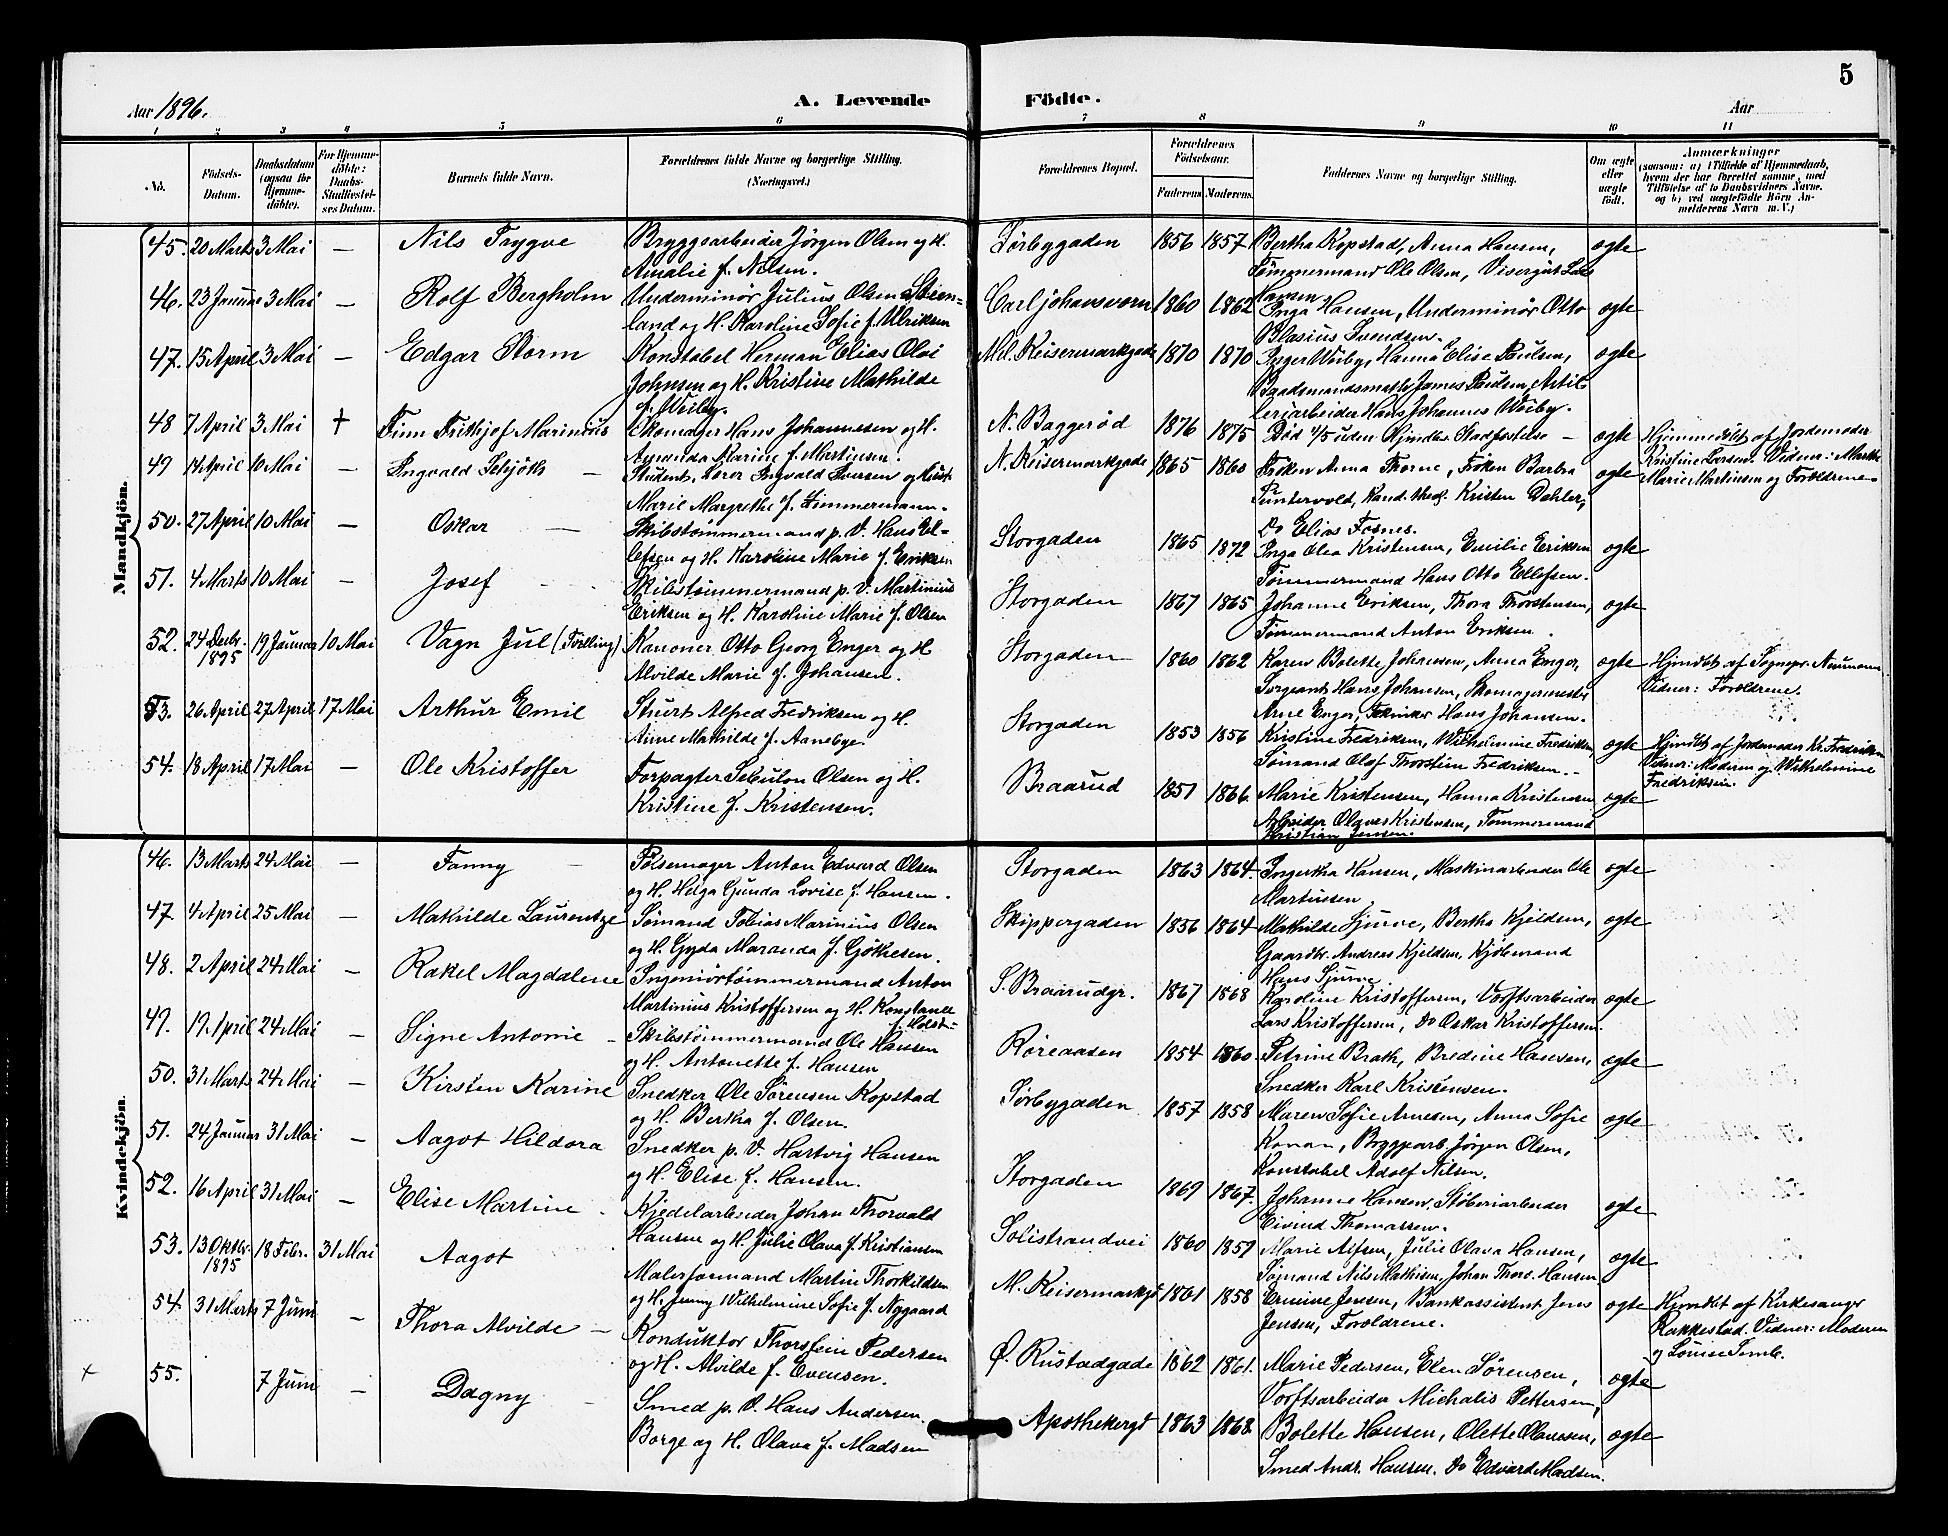 5
Aar 1896.
A. Levende Födte.
Aar
1 2 3 4 5 6 7 8 9 10 11
No.
Födsels-Datum.
Daabsdatum (ogsaa for Hjemmedöbte).
For Hjemmedöbte: Daabs-Stadfæstelses Datum.
Barnets fulde Navn.
Forældrenes fulde Navne og borgerlige Stilling. (Næringsvei.)
Forældrenes Bopæl.
Forældrenes Födselsaar.
Faderens. Moderens.
Faddernes Navne og borgerlige Stilling.
Om ægte eller uægte födt.
Anmærkninger
(saasom: a) i Tilfælde af Hjemmedaab, hvem der har forrettet samme, med Tilföielse af to Daabsvidners Navne, og b) ved uægtefödte Börn Anmelderens Navn m. V.)
Mandkjön.
45. 20 Marts 3 Mai — Nils Trygve Bryggearbeider Jørgen Olsen og H. Sørbygaden 1856 1857 Bertha Kopstad, Anna Hansen, ægte
Amalie f. Nilsen. Tømmermand Ole Olsen, Visergut Lars
Hansen
46. 23 Januar 3 Mai — Rolf Bergholm Underminør Julius Olsen Steen- Carljohansværn 1860 1862 Inga Hansen, Underminør Otto ægte
land og H. Karoline Sofie f. Ulriksen Blasius Svendsen.
47. 15 April 3 Mai — Edgar Storm Konstabel Herman Elias Olai Ml. Keisermarkgade 1870 1870 Inger Weiby, Hanna Elise Paulsen, ægte
Johnsen og H. Kristine Mathilde Baadsmandsmath James Paulsen, Artil
f. Weiby. leriarbeider Hans Johannes Weiby.
48 7 April 3 Mai + Finn Frithjof Marinius Skomager Hans Johannesen og H. N. Baggerød 1876 1875 Død 11/5 uden Hjmdbs. Stadfæstelse — ægte Hjemmedøbt af Jordemoder
Amanda Marine f. Martinsen. Kristine Larsen. Vidner: Marthe
Marie Martinsen og Forældrene
49 14 April 10 Mai — Ingvald Schjøth — Student, Lærer Ingvald Iversen og Hust. N. Keisermarkgade 1865 1860 Frøken Anna Thorne, Frøken Barbra ægte
Marie Margrethe f. Zimmermann. Puntervold, Kand. theol. Kristen Dahler,
Do Elias Fosnes.
50. 27 April 10 Mai — Oskar — Skibstømmermand p. V. Hans El- Storgaden 1865 1872 Inga Olea Kristensen, Emilie Eriksen ægte
lefsen og H. Karoline Marie f. Eriksen Tømmermand Hans Otto Ellefsen.
51. 4 Marts 10 Mai — Josef — Skibstømmermand p. V. Martinius Storgaden 1867 1865 Johanne Eriksen, Thora Thorstensen, ægte
Eriksen og H. Karoline Marie f. Olsen Tømmermand Anton Eriksen.
52. 24 Decbr. 1895 19 Januar 10 Mai Vagn Jul (Tvilling) Kanoner Otto Georg Enger og H Storgaden 1860 1862 Karen Bolette Johansen, Anna Enger, ægte Hjmdbt. af Sognepr. Neumann
Alvilde Marie f. Johansen. Sergeant Hans Johansen, Skomagermester Vidner: Forældrene.
Arne Enger, Tekniker Hans Johansen.
53. 26 April 27 April 17 Mai Arthur Emil Stuert Alfred Fredriksen og H. Storgaden 1853 1856 Kristine Fredriksen, Wilhelmine Fredriksen, ægte Hjmdbt. af Jordemoder Kr. Fredriksen
Anne Mathilde f. Aaneby. Sømand Olof Thorstein Fredriksen. Vidner: Moderen og Wilhelmine
Fredriksen.
54. 18 April 17 Mai — Ole Kristoffer Forpagter Sebulon Olsen og H. Braarud 1851 1866. Marie Kristensen, Hanna Kristensen ægte
Kristine f. Kristensen. Arbeider Olaves Kristensen, Tømmermand
Kristian Jensen.
Kvindekjön.
46. 13 Marts 24 Mai — Fanny — Pølsemager Anton Edvard Olsen Storgaden 1863 1864. Ingertha Hansen, Maskinarbeider Ole ægte
og H. Helga Gunda Lovise f. Hansen. Martinsen
47. 4 April 25 Mai — Mathilde Laurentze Sømand Tobias Marinius Olsen Skippergaden 1856 1864 Mathilde Sjunne, Bertha Kjeldsen, ægte
og H. Gyda Maranda f. Gjøkesen. Gaardbr. Andreas Kjeldsen, Kjøbmand
Hans Sjunne.
48. 2 April 24 Mai — Rakel Magdalene Ingeniørtømmermand Anton S. Braarudgr. 1867 1868 Karoline Kristoffersen, Værftsarbeider ægte
Martinius Kristoffersen og H. Konstance f. Holst. Lars Kristoffersen, Do Oskar Kristoffersen.
49. 19 April 24 Mai — Signe Antonie — Skibstømmermand Ole Hansen Røreaasen 1854 1860. Petrine Brath, Bredine Hansen, ægte
og H. Antonette f. Hansen Snedker Karl Kristensen.
50. 31 Marts 24 Mai — Kirsten Karine Snedker Ole Sørensen Kopstad Sørbygaden 1857 1858 Maren Sofie Arnesen, Anna Sofie ægte
og H. Bertha f. Olsen. Roman, Bryggearb. Jørgen Olsen,
Konstabel Adolf Nilsen.
51. 24 Januar 31 Mai — Aagot Hildora Snedker p. V. Hartvig Hansen Storgaden 1869 1867. Johanne Hansen, Støberiarbeider ægte
og H. Elise f. Hansen. Eivind Thomassen.
52. 16 April 31 Mai — Elise Martine Kjedelarbeider Johan Thorvald Solistrandvei 1860 1859 Marie Alfsen, Julie Olava Hansen, ægte
Hansen og H. Julie Olava f. Kristiansen Sømand Nils Mathisen, Johan Thorv. Hansen
53. 13 Oktbr. 1895 18 Febr. 31 Mai Aagot Malerformand Martin Thorkildsen M. Keisermarkgd 1861 1858 Ermine Jensen, Bankassistent Jens ægte Hjmdbt. af Kirkesanger
og H. Jenny Wilhelmine Sofie f. Nygaard Jensen, Forældrene. Rakkestad. Vidner: Moderen
og Louise Semb.
54. 31 Marts 7 Juni — Thora Alvilde — Konduktør Thorstein Pedersen Ø. Rustadgade 1862 1861. Marie Pedersen, Elen Sørensen, ægte
og H. Alvilde f. Evensen. Værftsarbeider Michalis Pettersen,
+ 55. 7 Juni — Dagny — Smed p. V. Hans Andersen Apothekergt 1863 1868. Bolette Hansen, Olette Olaussen, ægte
Borge og H. Olava f. Madsen Smed Andr. Hansen. Do Edvard Madsen.